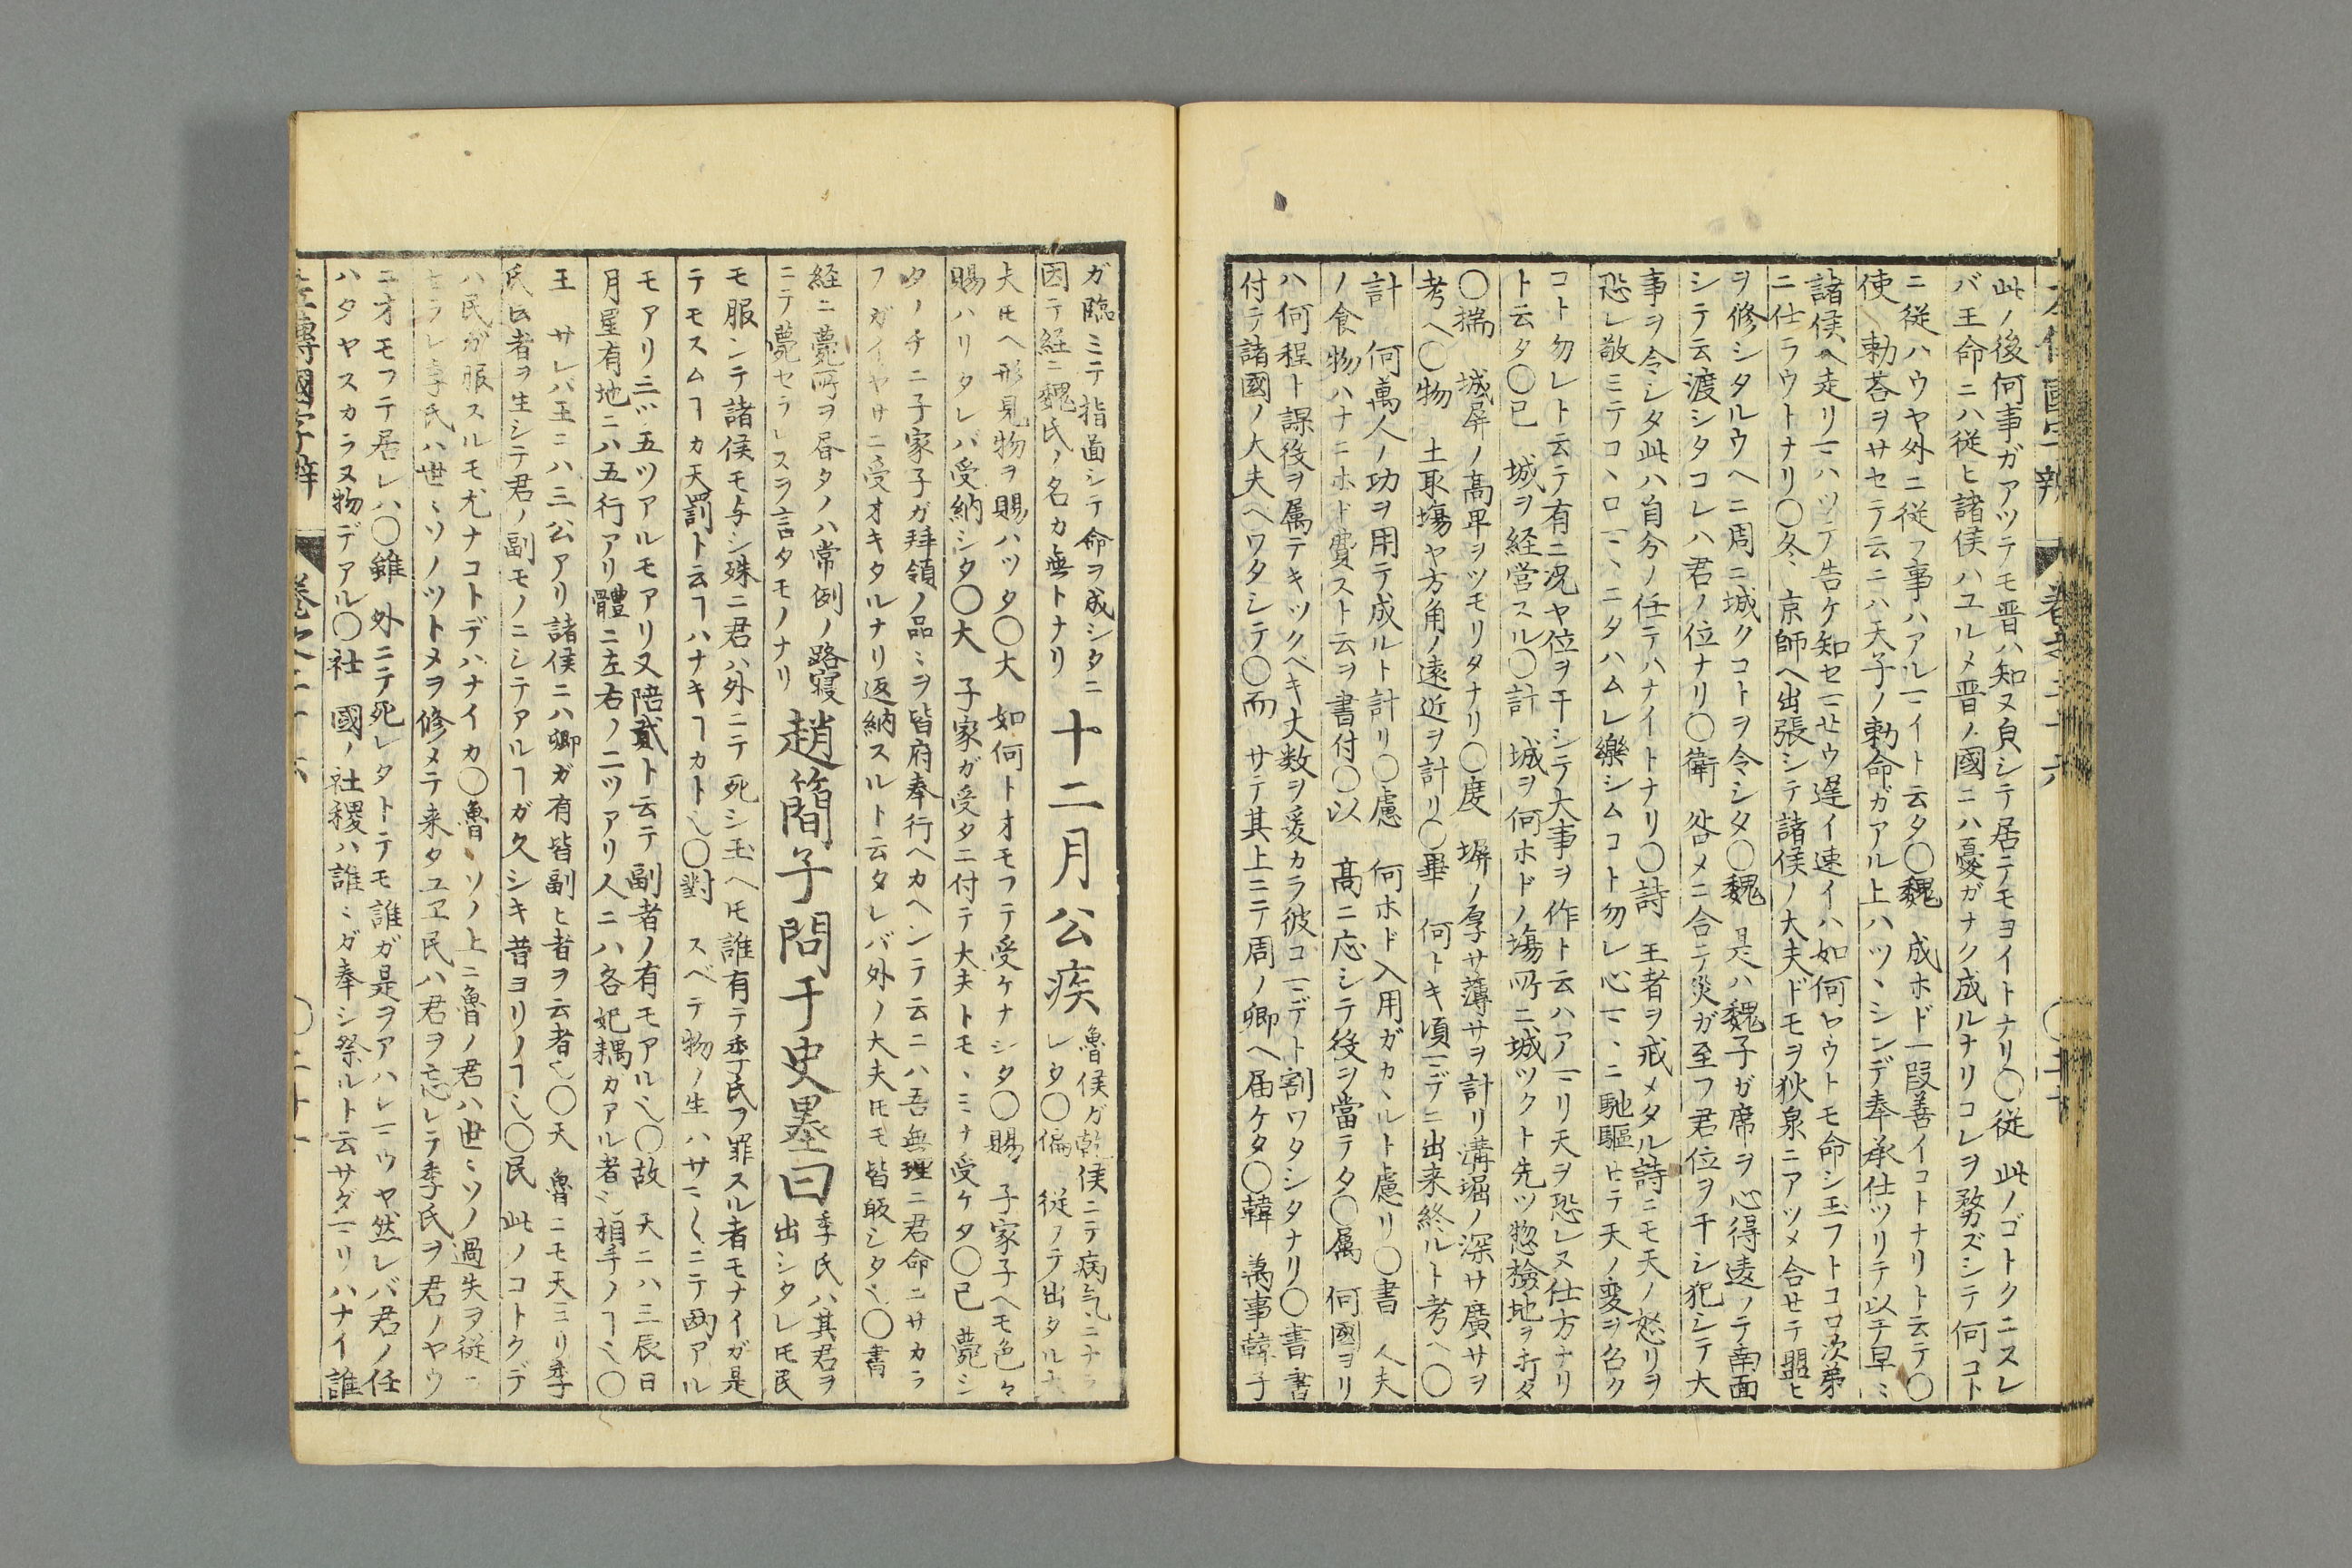 此ノ後何事ガアツテモ晋ハ知ヌ㒵シテ居テモヨイトナリ〇従 此ノゴトクニスレ
バ王命ニハ従ヒ諸侯ハユルメ晋ノ國ニハ憂ガナク成ルナリコレヲ務ズシテ何コト
ニ従ハウヤ外ニ従フ事ハアルマイト云タ〇魏 成ホド一段善イコトナリト云テ〇
使 勅荅ヲサセテ云ニハ天子ノ勅命ガアル上ハツヽシンデ奉承仕ツリテ以テ早ミ
諸侯ヘ走リマハツテ告ケ知セマセウ遅イ速イハ如何ヤウトモ命シ玉フトコロ次弟
ニ仕ラウトナリ〇冬、京師ヘ出張シテ諸侯ノ大夫ドモヲ狄泉ニアツメ合セテ盟ヒ
ヲ修シタルウヘニ周ニ城クコトヲ令シタ〇魏 是ハ魏子ガ席ヲ心得違ノテ南面
シテ云渡シタコレハ君ノ位ナリ〇衛 咎メニ合テ災ガ至フ君位ヲ干シ犯シテ大
事ヲ令シタ此ハ自分ノ任テハナイトナリ〇詩 王者ヲ戒メタル詩ニモ天ノ怒リヲ
恐レ敬ミテコヽロマヽニタハムレ樂シムコト勿レ心マヽニ馳驅セテ天ノ変ヲ名ク
コト勿レト云テ有ニ况ヤ位ヲ干シテ大事ヲ作ト云ハアマリ天ヲ恐レヌ仕方ナリ
ト云タ〇已 城ヲ経営スル〇計 城ヲ何ホドノ塲所ニ城ツクト先ツ惣檢地ヲ打タ
〇揣 城屏ノ高卑ヲツモリタナリ〇度 塀ノ厚サ薄サヲ計リ溝堀ノ深サ廣サヲ
考ヘ〇物 土取塲ヤ方角ノ遠近ヲ計リ〇畢 何トキ頃マデニ出来終ルト考ヘ〇
計 何萬人ノ功ヲ用テ成ルト計リ〇慮 何ホド入用ガカヽルト慮リ〇書 人夫
ノ食物ハナニホド費スト云ヲ書付〇以 高ニ応シテ役ヲ當テタ〇属 何國ヨリ
ハ何程ト課役ヲ属テキツクベキ大数ヲ爰カラ彼コマデト割ワタシタナリ〇書 書
付テ諸國ノ大夫ヘワタシテ〇而 サテ其上ニテ周ノ卿ヘ届ケタ〇韓 萬事韓子
ガ臨ミテ指畫シテ命ヲ成シタニ
因テ経ニ魏氏ノ名カ無トナリ
十二月公疾
魯侯ガ乾侯ニテ病気ニナラ
レタ〇徧 従フテ出タル
夫モヘ形見物ヲ賜ハツタ〇大 如何トオモフテ受ケナシタ〇賜 子家子ヘモ色々
賜ハリタレバ受納シタ〇大 子家ガ受タニ付テ大夫トモヽミナ受ケタ〇已 薨シ
タノチニ子家子ガ拜領ノ品ミヲ皆府奉行ヘカヘシテ云ニハ吾無理ニ君命ニサカラ
フガイヤサニ受オキタルナリ返納スルト云タレバ外ノ大夫トモヽ皆皈シタ〇書
経ニ薨所ヲ㫺タノハ常例ノ路寝
ニテ薨セラレヌヲ言タモノナリ
趙簡子問于史墨曰
季氏ハ其君ヲ
出シタレトモ民
モ服シテ諸侯モ与シ殊ニ君ハ外ニテ死シ玉ヘトモ誰有テ季氏ヲ罪スル者モナイガ是
テモスムヿカ天罰ト云ヿハナキヿカト〇對 スベテ物ノ生ハサマ〱ニテ兩アル
モアリ三ツ五ツアルモアリ又陪貳ト云テ副者ノ有モアル〇故 天ニハ三辰日
月星有地ニハ五行アリ體ニ左右ノ二ツアリ人ニハ各妃耦ガアル者ミ相手ノヿ〇
王 サレバ王ニハ三公アリ諸侯ニハ卿ガ有皆副ヒ者ヲ云者〇天 魯ニモ天ヨリ季
氏ト云者ヲ生シテ君ノ副モノニシテアルヿガ久シキ昔ヨリノヿ〇民 此ノコトクデ
ハ民ガ服スルモ尤ナコトデハナイカ〇魯 ソノ上ニ魯ノ君ハ世ミソノ過失ヲ従マ
セラレ季氏ハ世ミソノツトメヲ修メテ来タユヱ民ハ君ヲ忘レテ季氏ヲ君ノヤウ
ニオモフテ居レハ〇雖 外ニテ死レタトテモ誰ガ是ヲアハレマウヤ然レバ君ノ任
ハタヤスカラヌ物デアル〇社 國ノ社稷ハ誰ミガ奉シ祭ルト云サダマリハナイ誰
左傳國字辯 卷之二十六